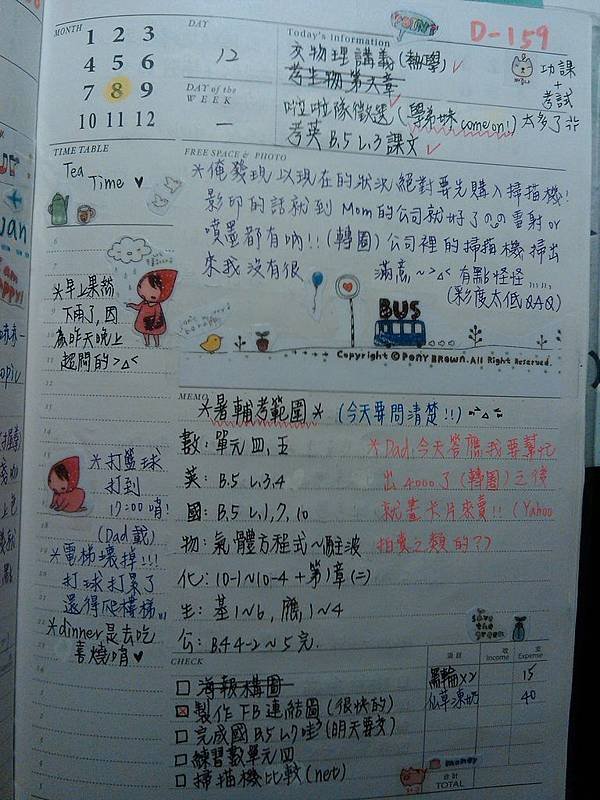 MONTH
1 2 3
4 5 6
7 8 9
10 11 12
DAY
12
DAY of the
WEEK
一
POINT
D-159
Today's information
交物理講義(熱學)✓
考生物第六章
啦啦隊徵選(學弟妹come on!)太多了
考英 B.5 L.3 課文✓
功課
+
考試
TIME TABLE
Tea
Time ♥
※早上果然
下雨了,因
為昨天晚上
超悶的>△<
※打籃球
打到
17:00唷!
(Dad載)
※電梯壞掉!!!
打球打累了
還得爬樓梯
※dinner是去吃
喜燒唷♥
FREE SPACE & PHOTO
※俺發現以現在的狀況絕對要先購入掃描機!
影印的話就到Mom的公司就好了 雷射or
噴墨都有吶!!(轉圈)公司裡的掃描機掃出
來我沒有很 滿意,~>△< 有點怪怪
(彩度太低QAQ)
BUS
Copyright © PONY BROWN. All Right Reserved.
MEMO
※暑輔考範圍※ (今天要問清楚!!)
數:單元四,五
英:B.5 L.3,4
國:B.5 L.1,7,10
物:氣體方程式~駐波
化:10-1~10-4+第1章(二)
生:基1~6,應,1~4
公:B4 4-2~5完
※Dad今天答應我要幫忙
出4000了(轉圈)之後
就畫卡片來賣!!(Yahoo
拍賣之類的??)
save
the
green
CHECK
□ 海報構圖
☒ 製作FB連結圖(很快的)
□ 完成國B.5 L.7哇?(明天要交)
□ 練習數單元四
□ 掃描機比較(net)
項目 收 Income 支 Expense
黑輪×2 15
仙草凍奶 40
money
合計
TOTAL